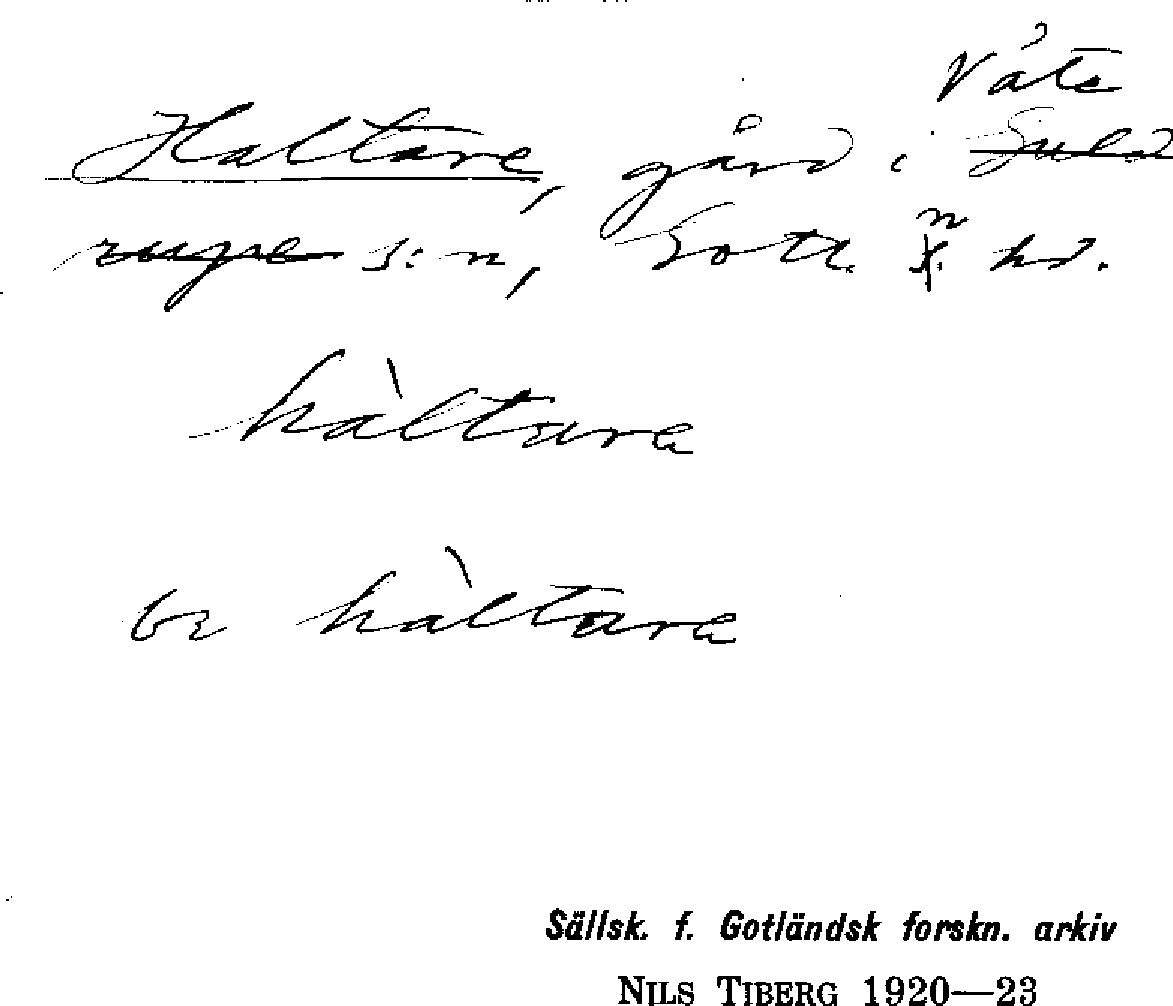 Väte
Haltare, gård i Guld
rupe s:n, Gotl. n. hd.
hàltare
be hàltare
Sällsk. f. Gotländsk forskn. arkiv
NILS TIBERG 1920—23